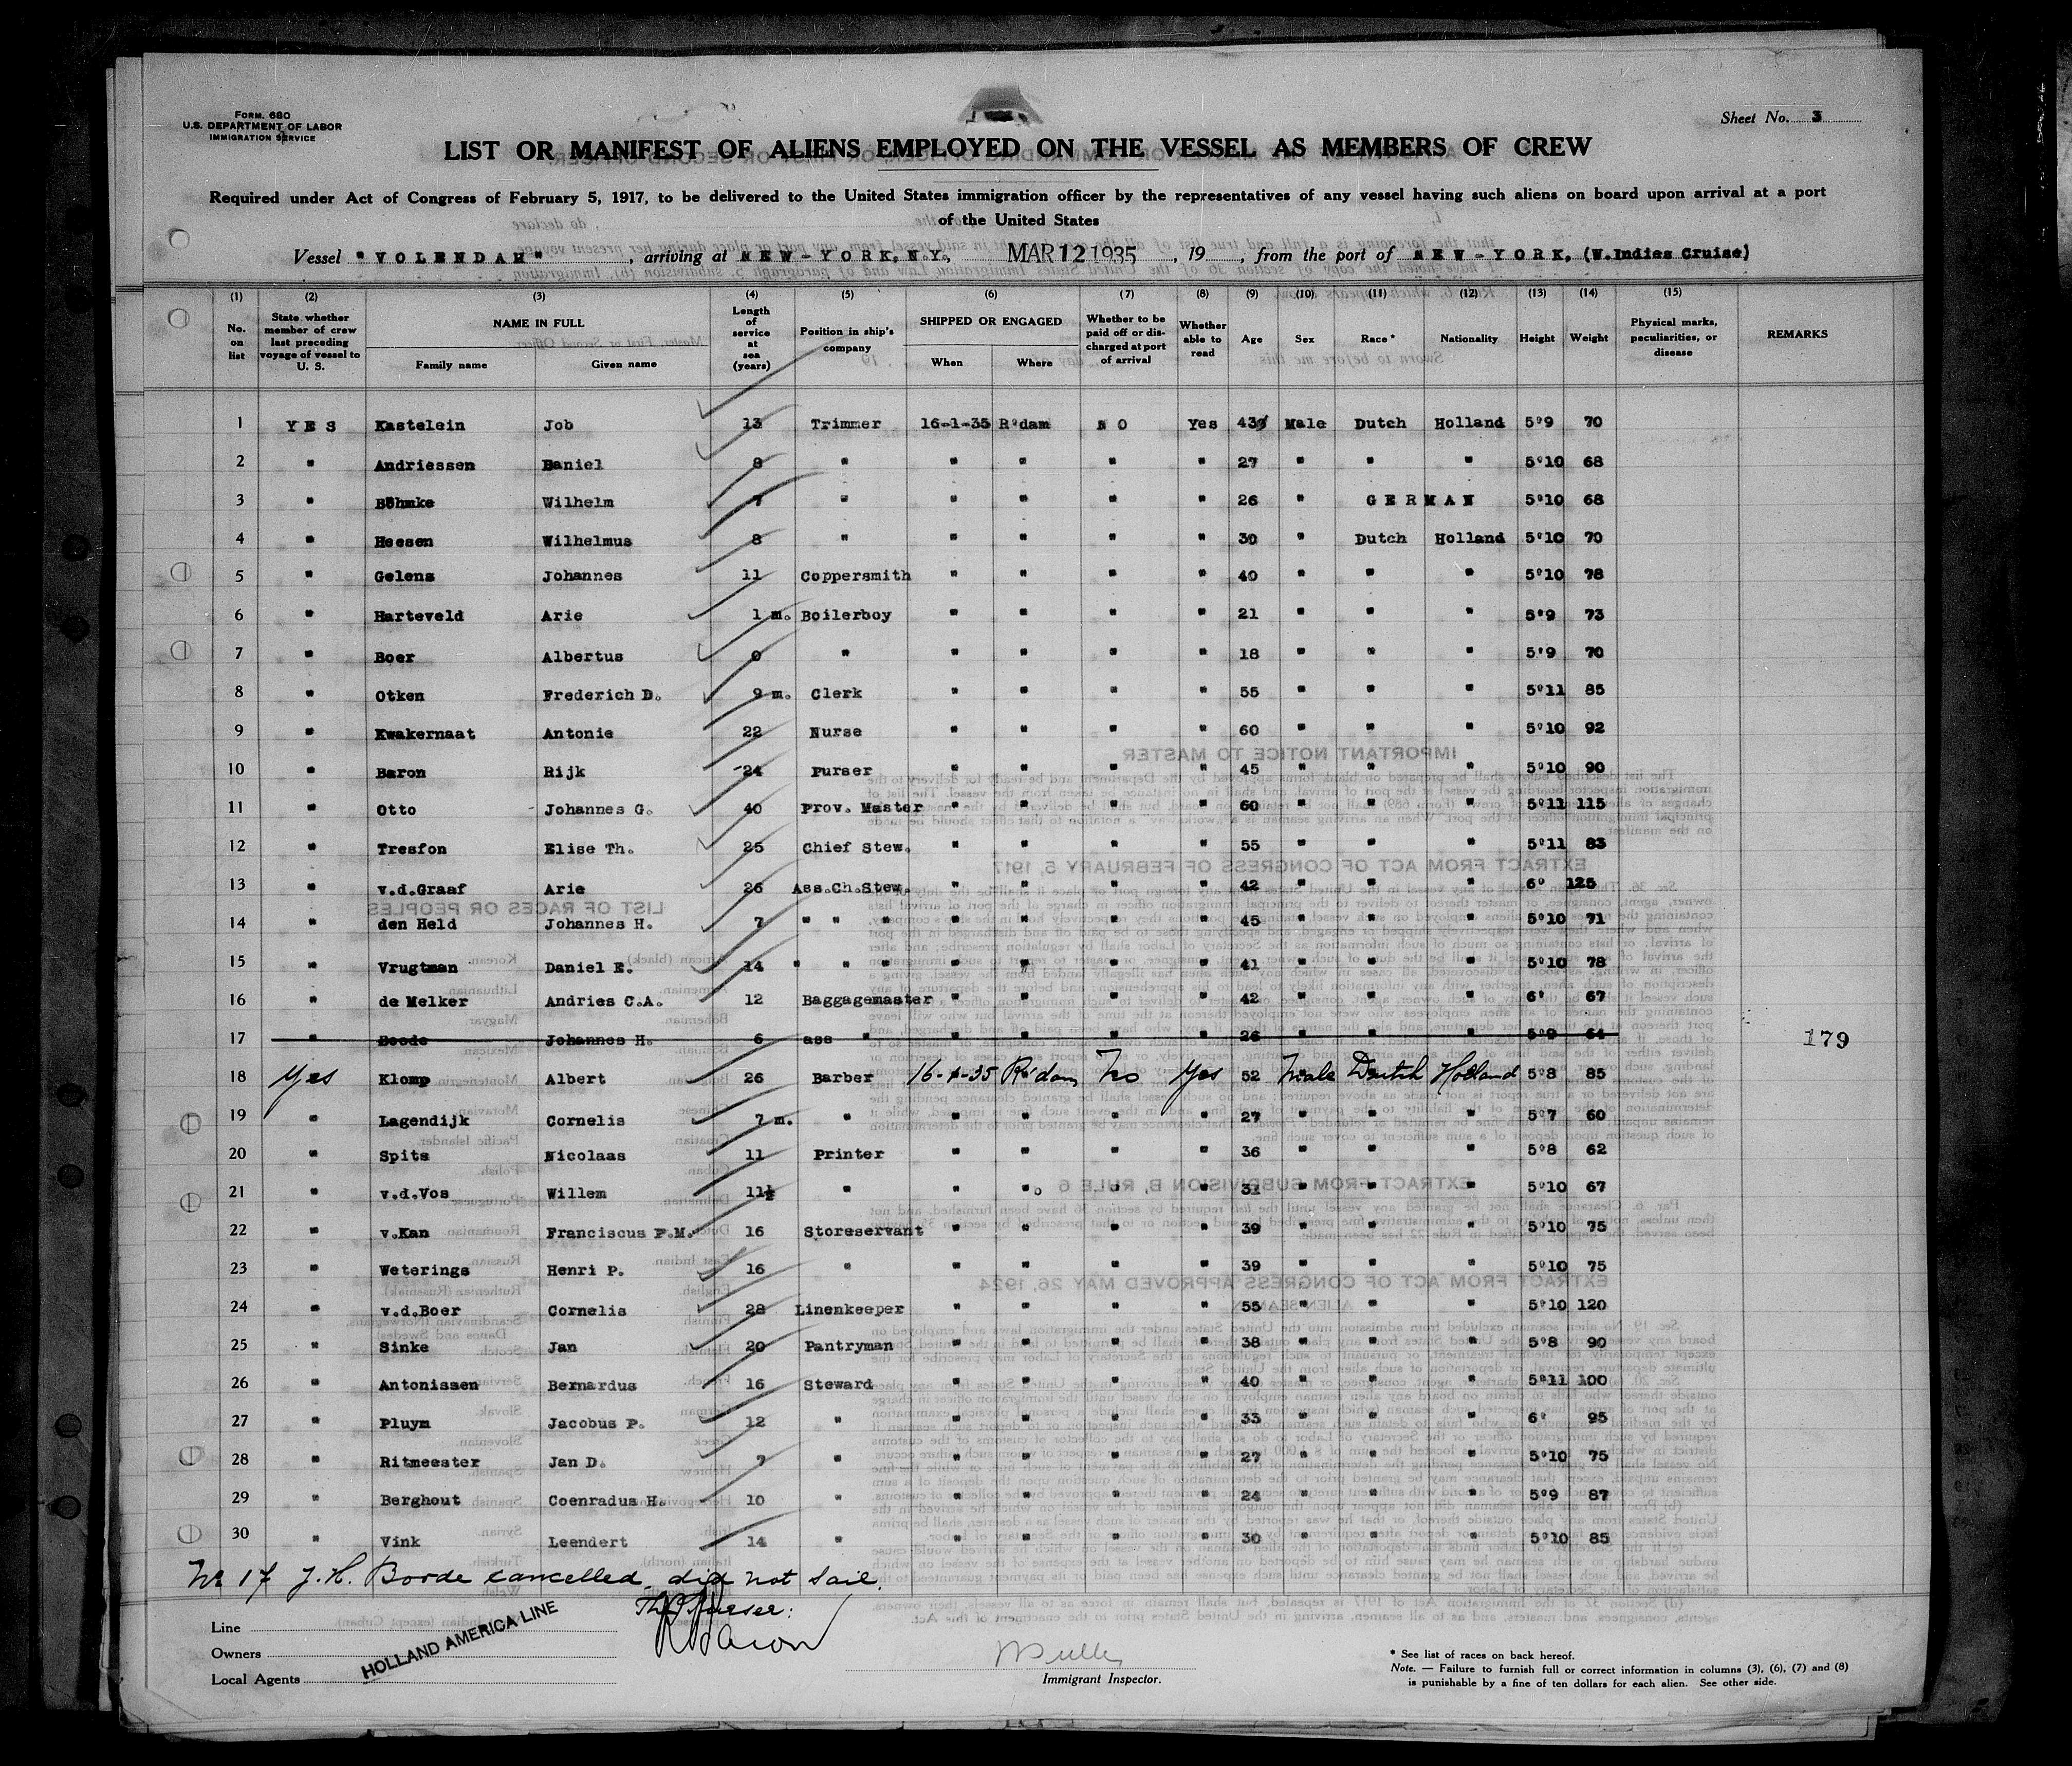 Form. 680
U.S. DEPARTMENT OF LABOR
IMMIGRATION SERVICE
Sheet No. 3
LIST OR MANIFEST OF ALIENS EMPLOYED ON THE VESSEL AS MEMBERS OF CREW
Required under Act of Congress of February 5, 1917, to be delivered to the United States immigration officer by the representatives of any vessel having such aliens on board upon arrival at a port
of the United States
Vessel "VOLENDAM", arriving at NEW-YORK, N.Y., MAR 12 1935, 19, from the port of NEW-YORK, (W.Indies Cruise)
(1) (2) (3) (4) (5) (6) (7) (8) (9) (10) (11) (12) (13) (14) (15)
No. on list | State whether member of crew last preceding voyage of vessel to U. S. | NAME IN FULL | Family name | Given name | Length of service at sea (years) | Position in ship's company | SHIPPED OR ENGAGED | When | Where | Whether to be paid off or discharged at port of arrival | Whether able to read | Age | Sex | Race* | Nationality | Height | Weight | Physical marks, peculiarities, or disease | REMARKS
1 YES Kastelein Job 13 Trimmer 16-1-35 R'dam NO Yes 43 Male Dutch Holland 5'9 70
2 " Andriessen Daniel 8 " " " " " 27 " " " 5'10 68
3 " Böhmke Wilhelm 7 " " " " " 26 " GERMAN 5'10 68
4 " Heesen Wilhelmus 8 " " " " " 30 " Dutch Holland 5'10 70
5 " Gelens Johannes 11 Coppersmith " " " " 40 " " " 5'10 78
6 " Harteveld Arie 1 m. Boilerboy " " " " 21 " " " 5'9 73
7 " Boer Albertus 0 " " " " " 18 " " " 5'9 70
8 " Otken Frederich D. 9 m. Clerk " " " " 55 " " " 5'11 85
9 " Kwakernaat Antonie 22 Nurse " " " " 60 " " " 5'10 92
10 " Baron Rijk 24 Purser " " " " 45 " " " 5'10 90
11 " Otto Johannes G. 40 Prov. Master " " " " 60 " " " 5'11 115
12 " Tresfon Elise Th. 25 Chief Stew. " " " " 55 " " " 5'11 83
13 " v.d.Graaf Arie 26 Ass.Ch.Stew. " " " " 42 " " " 6' 125
14 " den Held Johannes H. 7 " " " " " " " 45 " " " 5'10 71
15 " Vrugtman Daniel E. 14 " " " " " " " 41 " " " 5'10 78
16 " de Melker Andries C.A. 12 Baggagemaster " " " " 42 " " " 6' 67
17 " Boode Johannes H. 6 ass " " " " " 26 " " " 5'9 64 179
18 Yes Klomp Albert 26 Barber 16-1-35 R'dam No Yes 52 Male Dutch Holland 5'8 85
19 " Lagendijk Cornelis 7 m. " " " " " 27 " " " 5'7 60
20 " Spits Nicolaas 11 Printer " " " " 36 " " " 5'8 62
21 " v.d.Vos Willem 11½ " " " " " 31 " " " 5'10 67
22 " v.Kan Franciscus P.M. 16 Storeservant " " " " 39 " " " 5'10 75
23 " Weterings Henri P. 16 " " " " " 39 " " " 5'10 75
24 " v.d.Boer Cornelis 28 Linenkeeper " " " " 55 " " " 5'10 120
25 " Sinke Jan 20 Pantryman " " " " 38 " " " 5'8 90
26 " Antonissen Bernardus 16 Steward " " " " 40 " " " 5'11 100
27 " Pluym Jacobus P. 12 " " " " " 33 " " " 6' 95
28 " Ritmeester Jan D. 7 " " " " " 27 " " " 5'10 75
29 " Berghout Coenradus H. 10 " " " " " 24 " " " 5'9 87
30 " Vink Leendert 14 " " " " " 30 " " " 5'10 85
No 17 J.H. Boode cancelled, did not sail.
The Purser:
RBaron
Line
Owners
Local Agents
HOLLAND AMERICA LINE
Immigrant Inspector.
* See list of races on back hereof.
Note. — Failure to furnish full or correct information in columns (3), (6), (7) and (8)
is punishable by a fine of ten dollars for each alien. See other side.